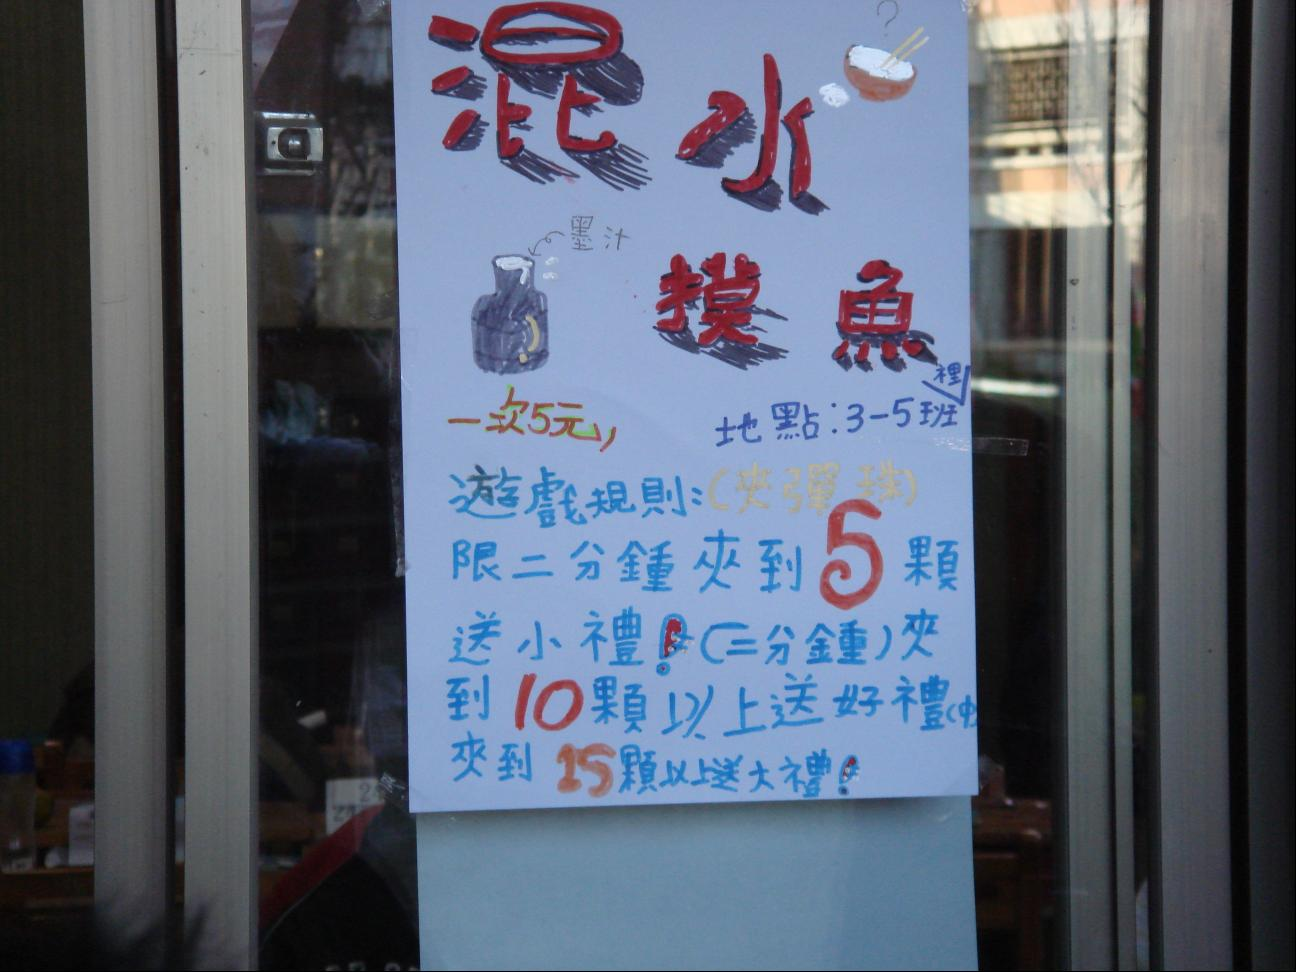 混水
?
墨汁
摸魚
一次5元,
地點:3-5班裡
遊戲規則:(夾彈珠)
限二分鍾夾到5顆
送小禮!(二分鍾)夾
到10顆以上送好禮(中)
夾到15顆以上送大禮!